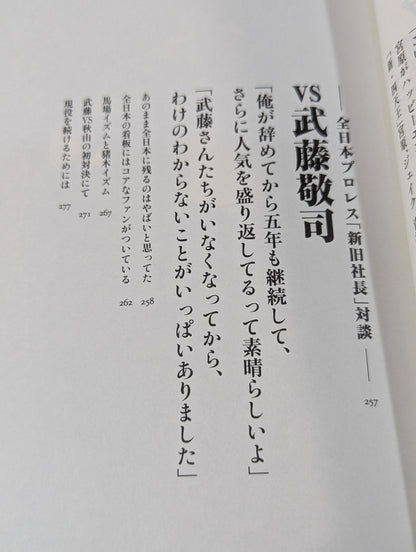 全日本プロレス「新旧社長」対談 257
VS 武藤敬司
「俺が辞めてから五年も継続して、
さらに人気を盛り返してるって素晴らしいよ」
「武藤さんたちがいなくなってから、
わけのわからないことがいっぱいありました」
あのまま全日本に残るのはやばいと思ってた 258
全日本の看板にはコアなファンがついている 262
馬場イズムと猪木イズム 267
武藤VS秋山の初対決にて 271
現役を続けるためには 277